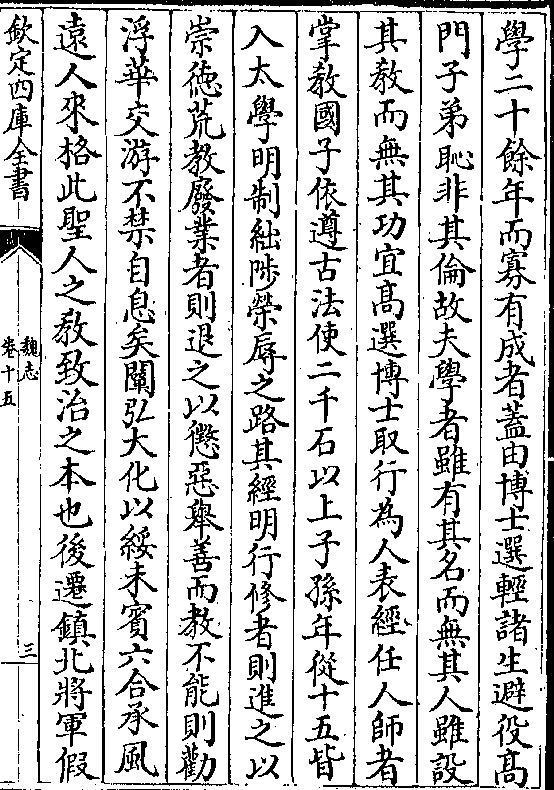 學二十餘年而寡有成者蓋由博士選輕諸生避役髙
門子弟恥非其倫故夫學者雖有其名而無其人雖設
其敎而無其功宜髙選博士取行為人表經任人師者
掌敎國子依遵古法使二千石以上子孫年從十五皆
入太學明制絀陟榮辱之路其經明行修者則進之以
崇徳荒教廢業者則退之以懲惡舉善而教不能則勸
浮華交游不禁自息矣闡弘大化以綏未賓六合承風
遠人來格此聖人之敎致治之本也後遷鎮北將軍假
欽定四庫全書
魏志
卷十五
三